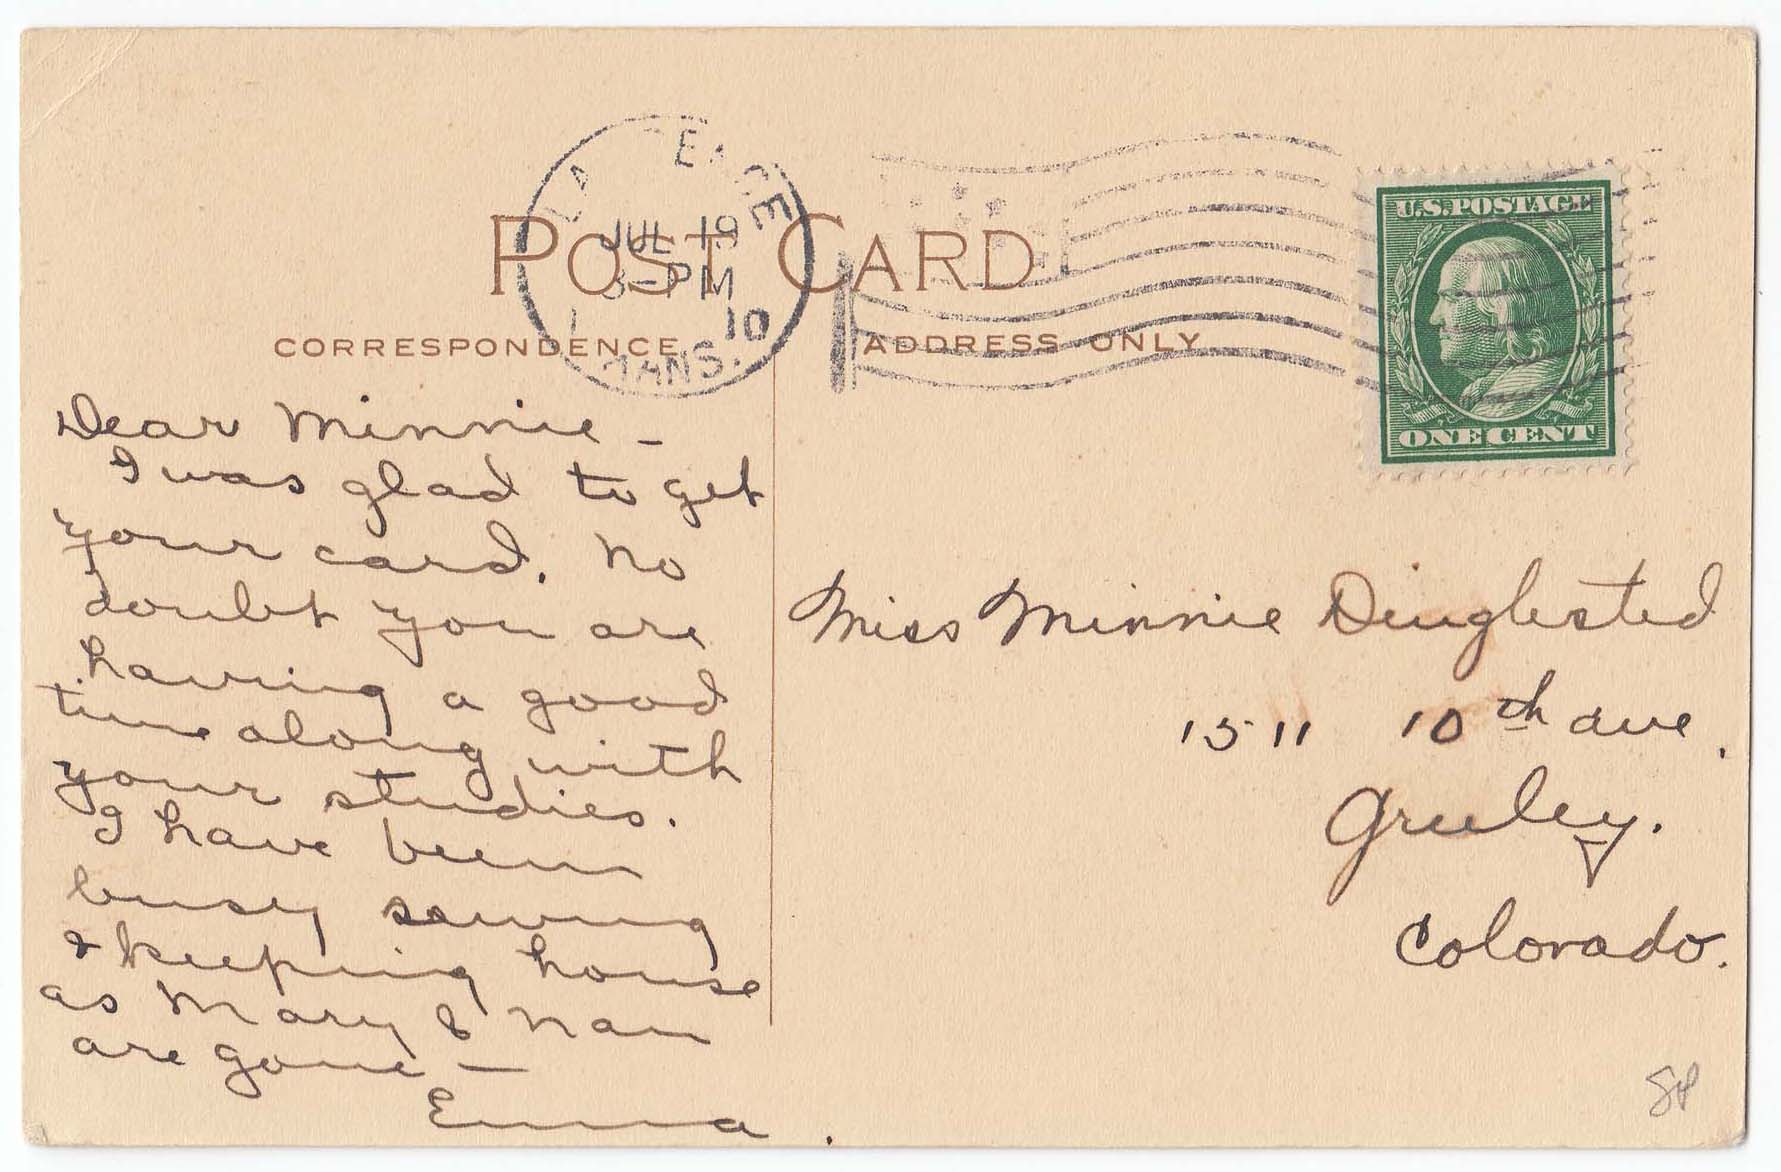 LA ENCE
JUL 19
3-PM
10
KANS.
U.S. POSTAGE
ONE CENT
POST CARD
CORRESPONDENCE
ADDRESS ONLY
Dear Minnie -
I was glad to get
your card. No
doubt you are
having a good
time along with
your studies.
I have been
busy sewing
& keeping house
as Mary & Nan
are gone -
Emma.
Miss Minnie Dinglested
1511 10th ave.
Greeley.
Colorado.